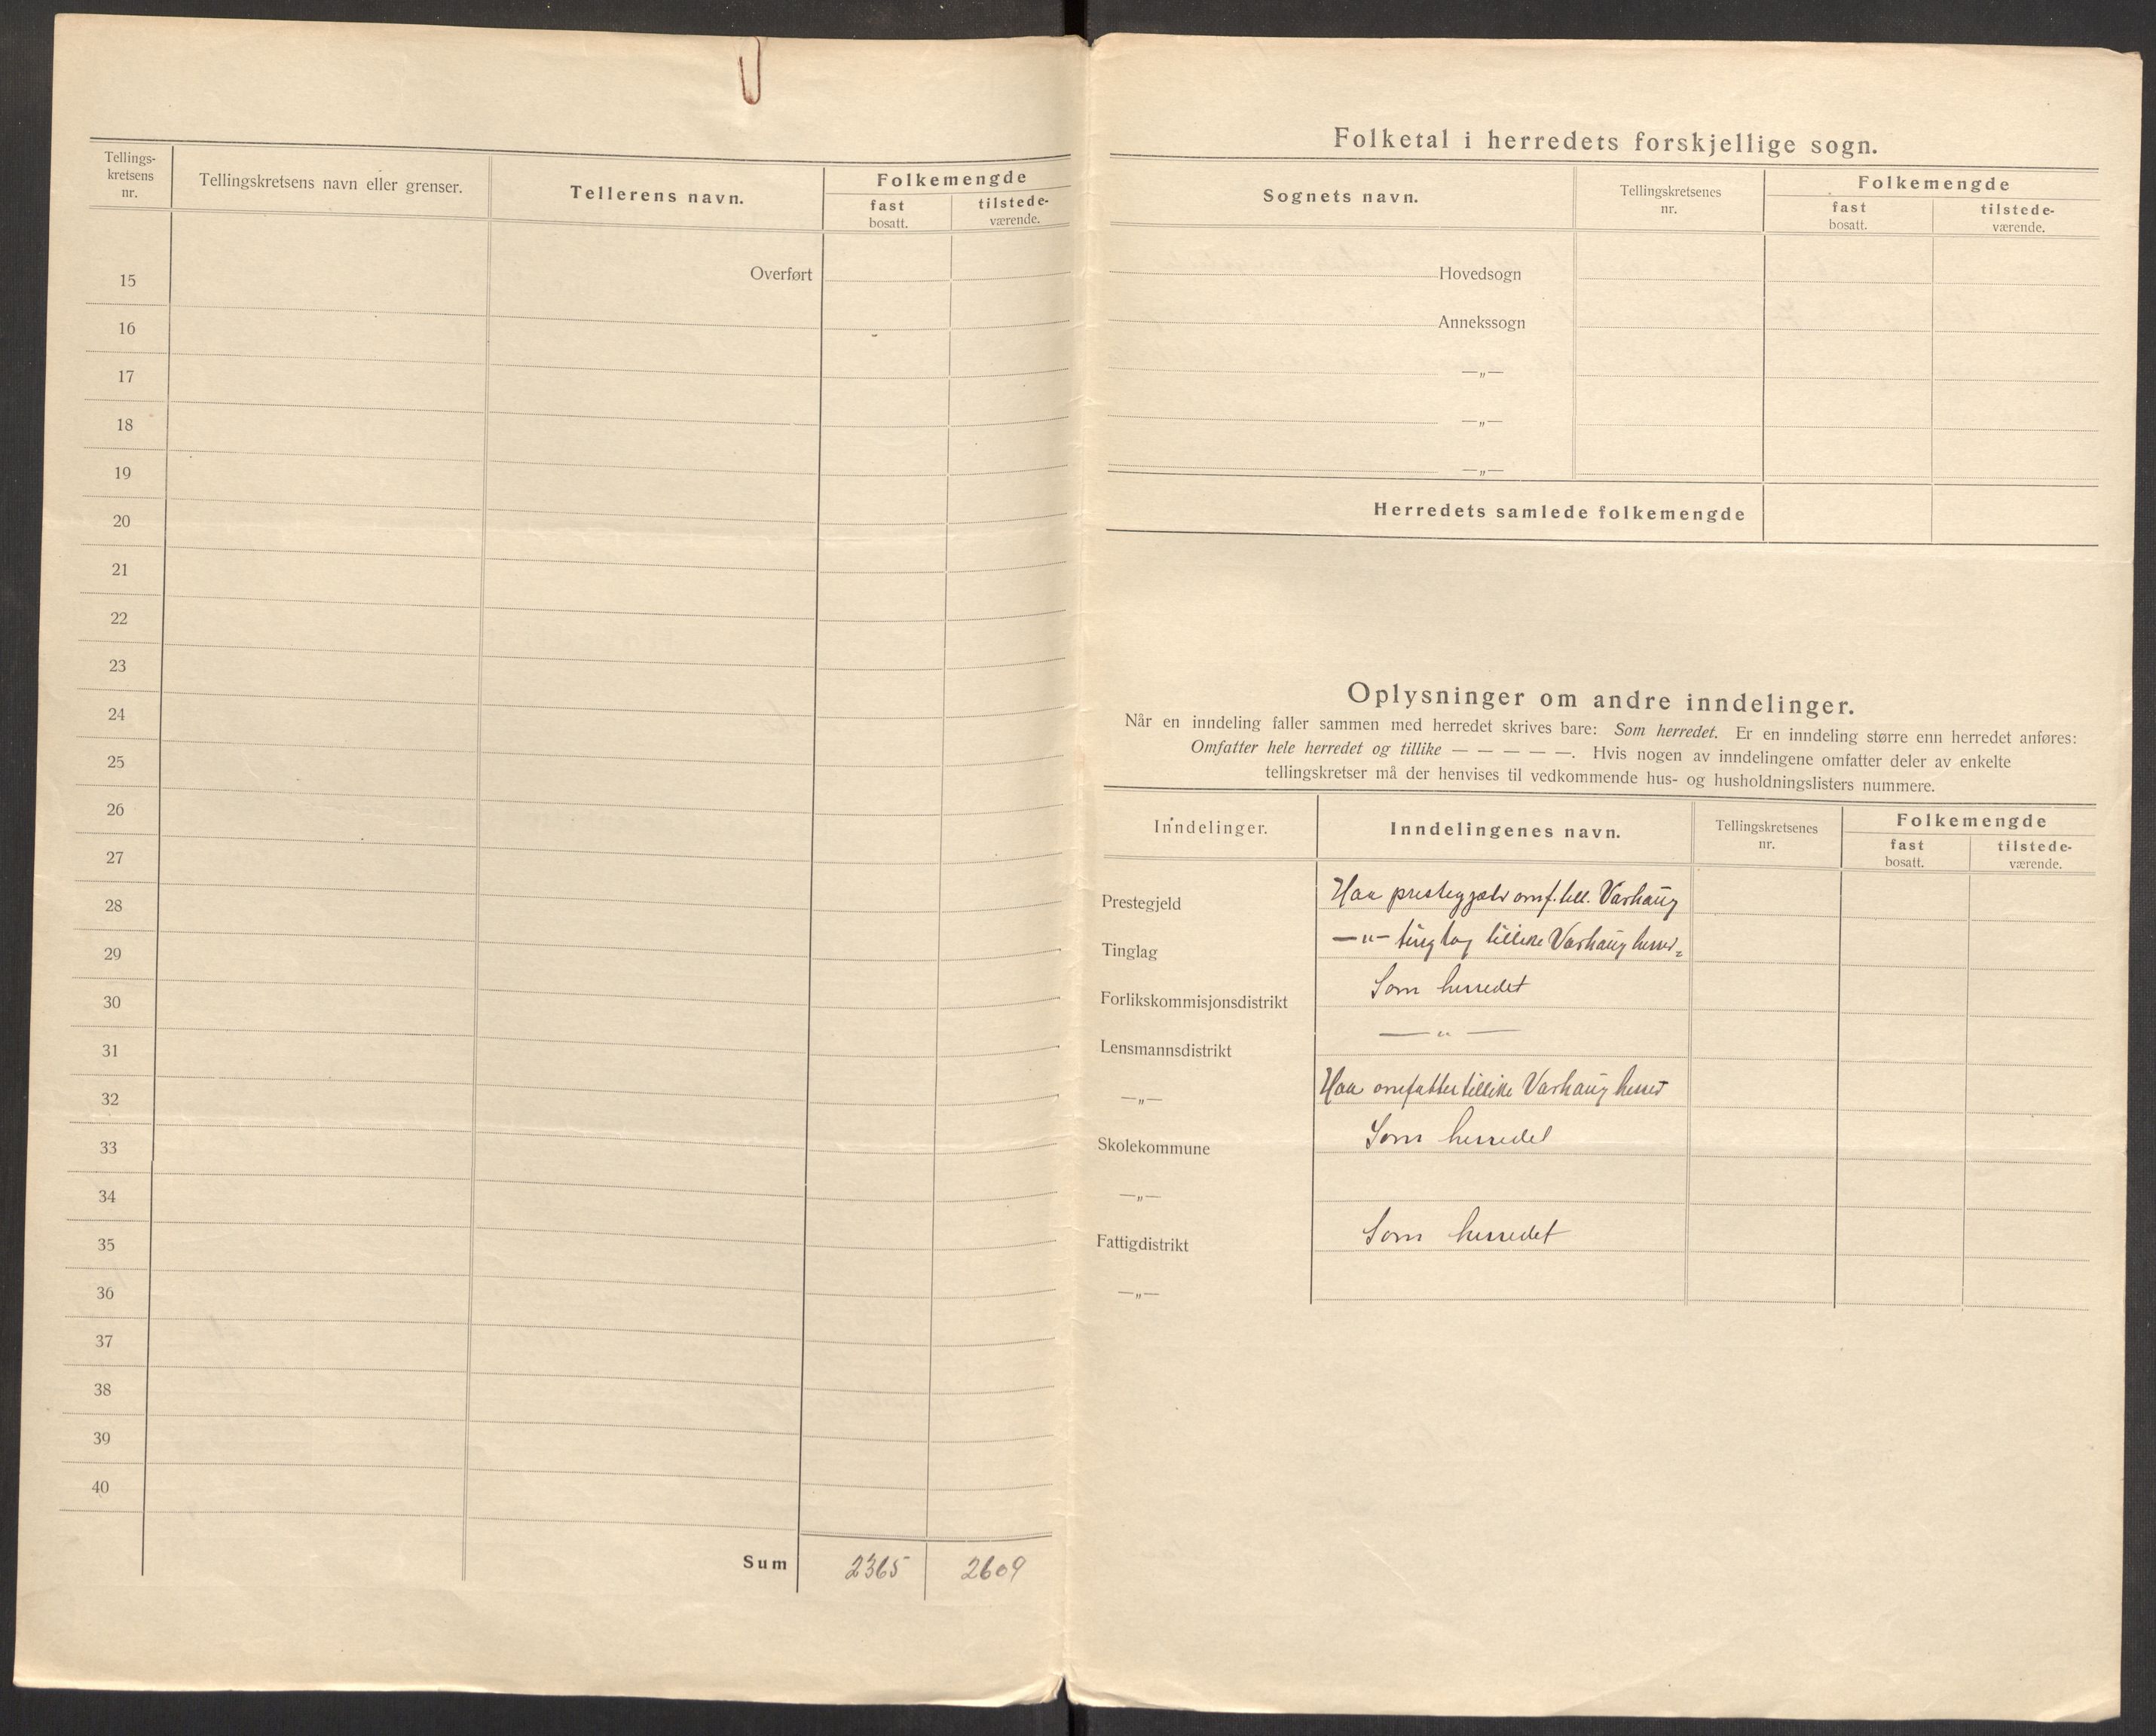 Tellings-
kretsens
nr.
Tellingskretsens navn eller grenser.
Tellerens navn.
Folkemengde
fast
bosatt.
tilstede-
værende.
Overført
15
16
17
18
19
20
21
22
23
24
25
26
27
28
29
30
31
32
33
34
35
36
37
38
39
40
Sum 2365 2609
Folketal i herredets forskjellige sogn.
Sognets navn.
Tellingskretsenes
nr.
Folkemengde
fast
bosatt.
tilstede-
værende.
Hovedsogn
Annekssogn
—„—
—„—
—„—
Herredets samlede folkemengde
Oplysninger om andre inndelinger.
Når en inndeling faller sammen med herredet skrives bare: Som herredet. Er en inndeling større enn herredet anføres:
Omfatter hele herredet og tillike — — — — —. Hvis nogen av inndelingene omfatter deler av enkelte
tellingskretser må der henvises til vedkommende hus- og husholdningslisters nummere.
Inndelinger.
Inndelingenes navn.
Tellingskretsenes
nr.
Folkemengde
fast
bosatt.
tilstede-
værende.
Prestegjeld Haa prestegjæld omf. till. Varhaug
Tinglag —„— tinglag tillike Varhaug herred
Forlikskommisjonsdistrikt Som herredet
Lensmannsdistrikt —„—
—„— Haa omfatter tillike Varhaug herred
Skolekommune Som herredet
—„—
Fattigdistrikt Som herredet
—„—